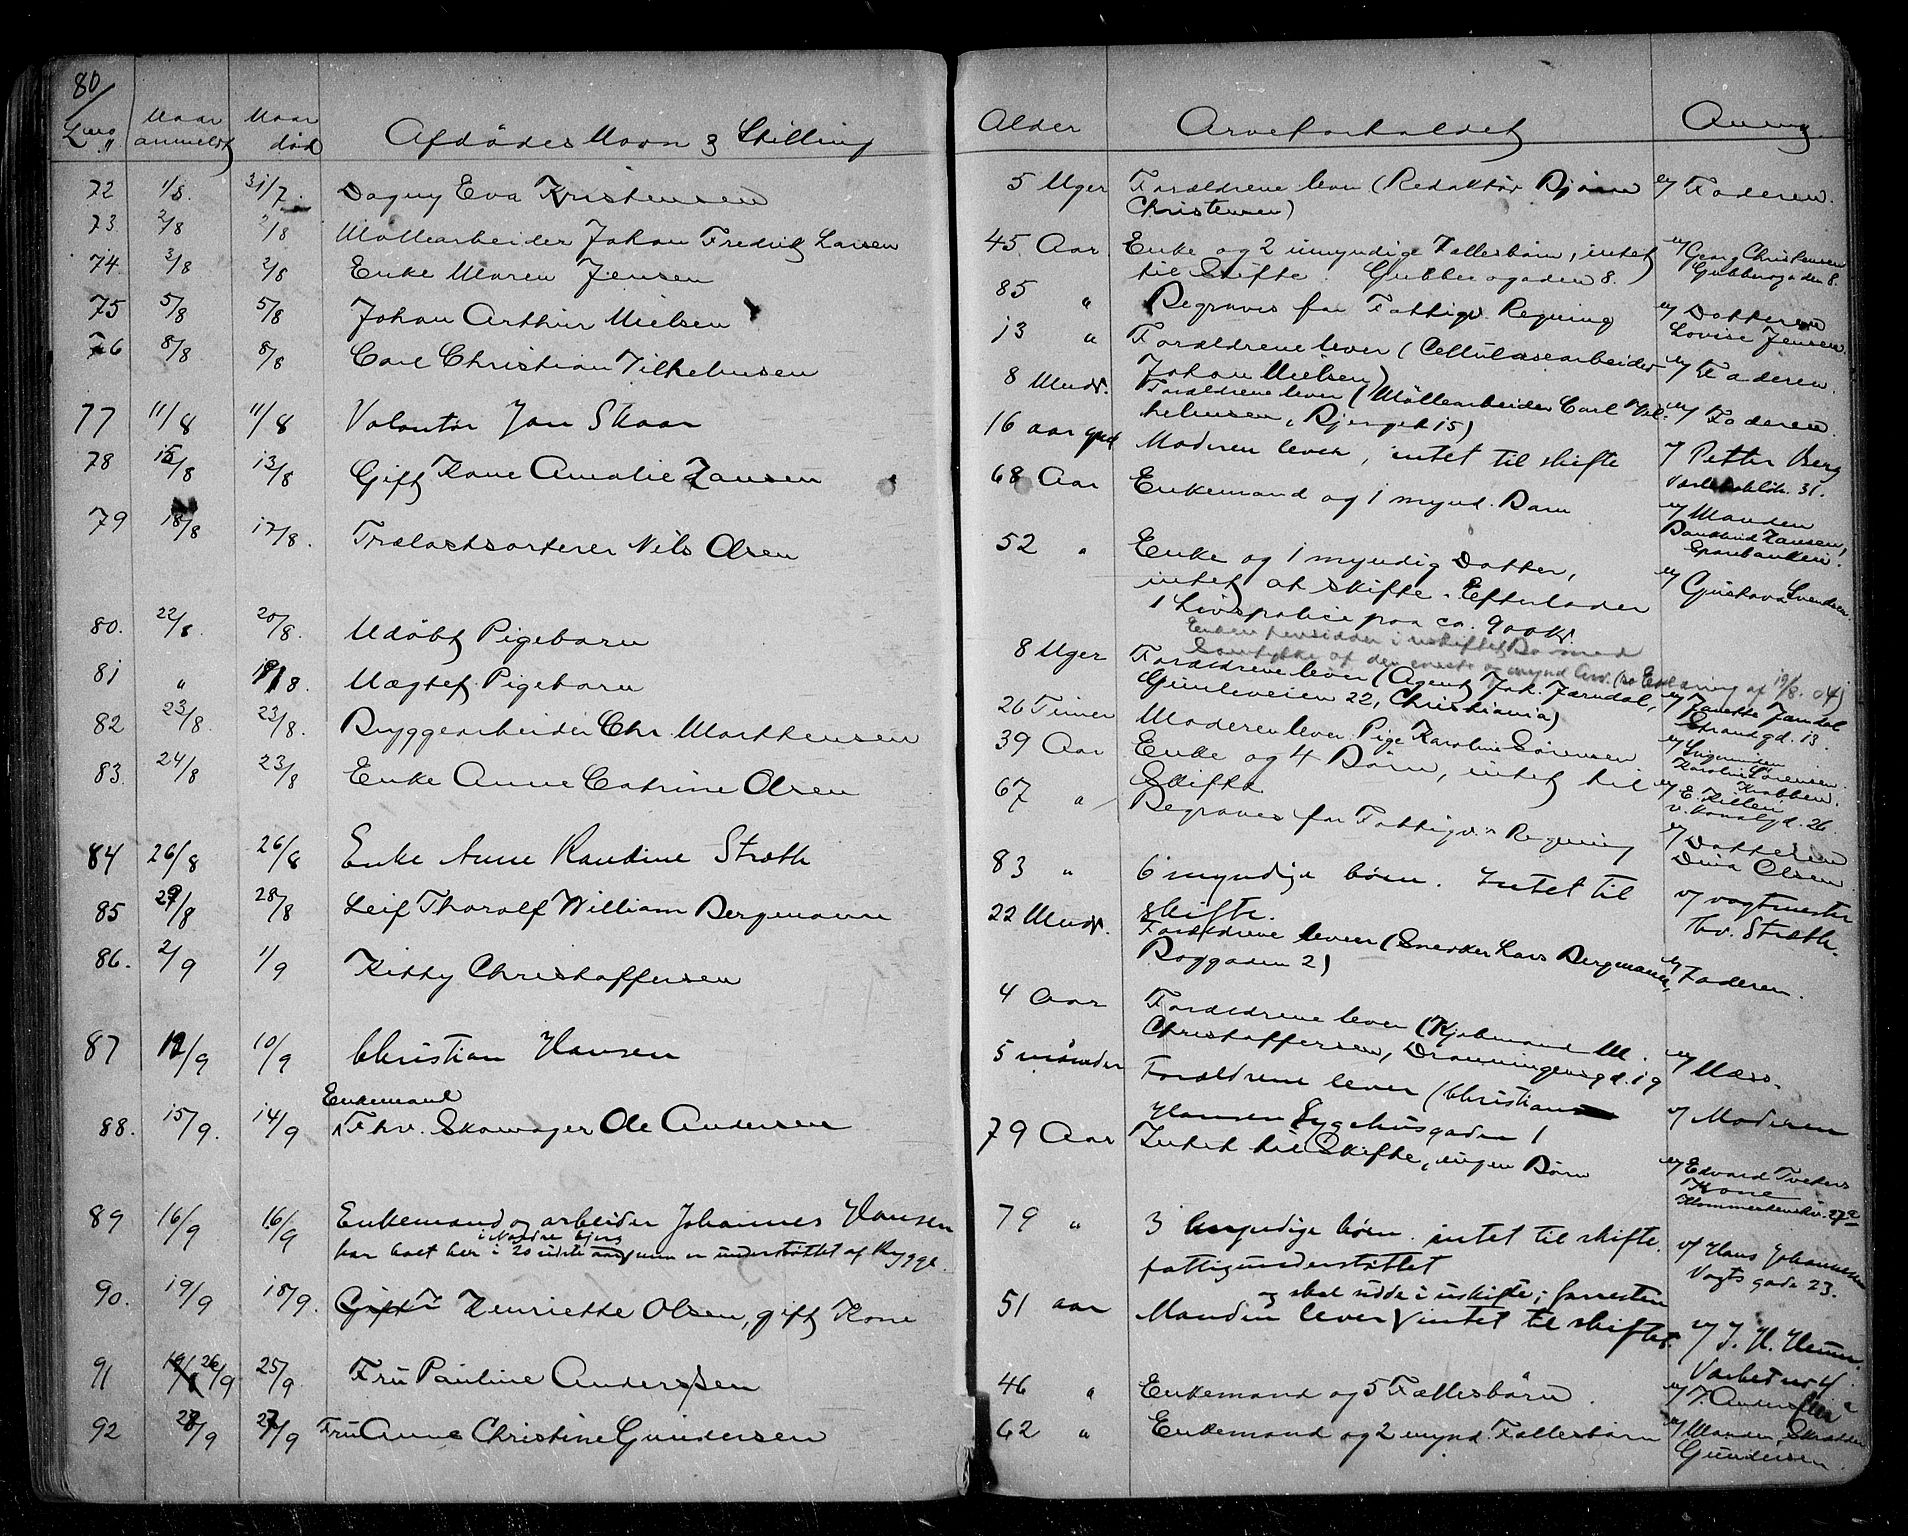 80
Lno Naar anmeldt Naar død Afdødes Navn & Stilling
72 1/8. 31/7. Dagny Eva Kristensen
73 2/8 2/8 Møllearbeider Johan Fredrik Larsen
74 3/8 2/8 Enke Maren Jensen
75 5/8 5/8 Johan Arthur Nielsen
76 8/8 8/8 Carl Christian Vilhelmsen
77 11/8 11/8 Volontør Jan Skaar
78 15/8 13/8 Gift Kone Amalie Hansen
79 18/8 17/8. Trælastsorterer Nils Olsen
80. 22/8. 20/8. Udøbt Pigebarn
81 " 19/8. Uægtef. Pigebarn
82 23/8. 23/8. Bryggearbeider Chr. Morthensen
83 24/8 23/8 Enke Anne Catrine Olsen
84 26/8 26/8 Enke Anne Randine Stræth
85 29/8 28/8 Leif Thoralf William Bergmann
86. 2/9 1/9 Kitty Christoffersen
87 12/9 10/9 Christian Hansen
Enkemand
88. 15/9. 14/9 Fhv. Skomager Ole Andersen
89 16/9 16/9 Enkemand og arbeider Johannes Hansen
i Nordre bjerg
har boet her i 20 men er understøttet af Rygge.
90. 19/9 18/9. Gift Henriette Olsen, gift Kone
91 26/9 25/9 Fru Pauline Anderssen
92 28/9 27/9 Fru Anne Christine Gundersen
Alder Arveforholdet Anm.
5 Uger Forældrene lever (Redaktør Bjørn v/ Faderen.
Christensen)
45 Aar. Enke og 2 umyndige Fællesbørn, intet v/ Georg Christensen
til Skifte. Gubberogaden 8. Gubberogaden 8.
85 " Begraves for Fattigv. Regning v/ Datteren
Lovise Jensen.
13 " Forældrene lever (Cellulosearbeider v/ Faderen.
Johan Nielsen)
8 Mndr. Forældrene lever (Møllearbeider Carl Vil- v/ Faderen.
helmsen, Bjerget 15)
16 aar gml Moderen lever, intet til skifte v/ Petter Berg
31.
68 Aar Enkemand og 1 mynd. Barn v/ Manden
Bankbud Hansen,
Sparebanken.
52 " Enke og 1 myndig Datter, v/ Gustava Svendsen
intet at skifte. Efterlader
1 Livspolice paa ca. 900 Kr.
Enken hensidder i uskiftet Bo med
Samtykke af den eneste mynd Arv. (se Erklæring af 19/8. 04)
8 Uger Forældrene lever (Agent Joh. Jarndal, v/ Janette Jarndal
Grünleveien 22, Christiania) Strandgd. 13.
26 Timer Moderen lever. Pige Karoline Sørensen v/ Svigerinden
Karoline Sørensen
39 Aar Enke og 4 Børn, intet til v/ E. Krabben.
Skifte v. 26.
67 " Begraves for Fattigv's Regning v/ Datteren
Dina Olsen
83 " 6 myndige børn. Intet til v/ vagtmester
skifte. Thv. Stræth.
22 Mndr. Forældrene lever (Snekker Lars Bergmann, v/ Faderen.
Boggaden 2)
4 Aar Forældrene lever (Kjøbmand M. v/ Næss.
Christoffersen, Dronningensgd. 19
5 måneder Forældrene lever (Christian v/ Moderen
Hansen Sygehusgaden 1
79 Aar Intet til Skifte, ingen Børn v/ Edvard Tveters
Kone
27 a
79 " 3 myndige børn. intet til skifte. v/ Hans Johannesen
fattigunderstøttet Vogts gade 23.
og skal sidde i uskifte; forresten
51 aar Manden lever intet til skiftet. v/ J. H.
Varbet no 4
46 " Enkemand og 5 Fællesbørn. v/ J. Andersen
62 " Enkemand og 2 mynd. Fællesbørn v/ Manden, Skrædder
Gundersen.